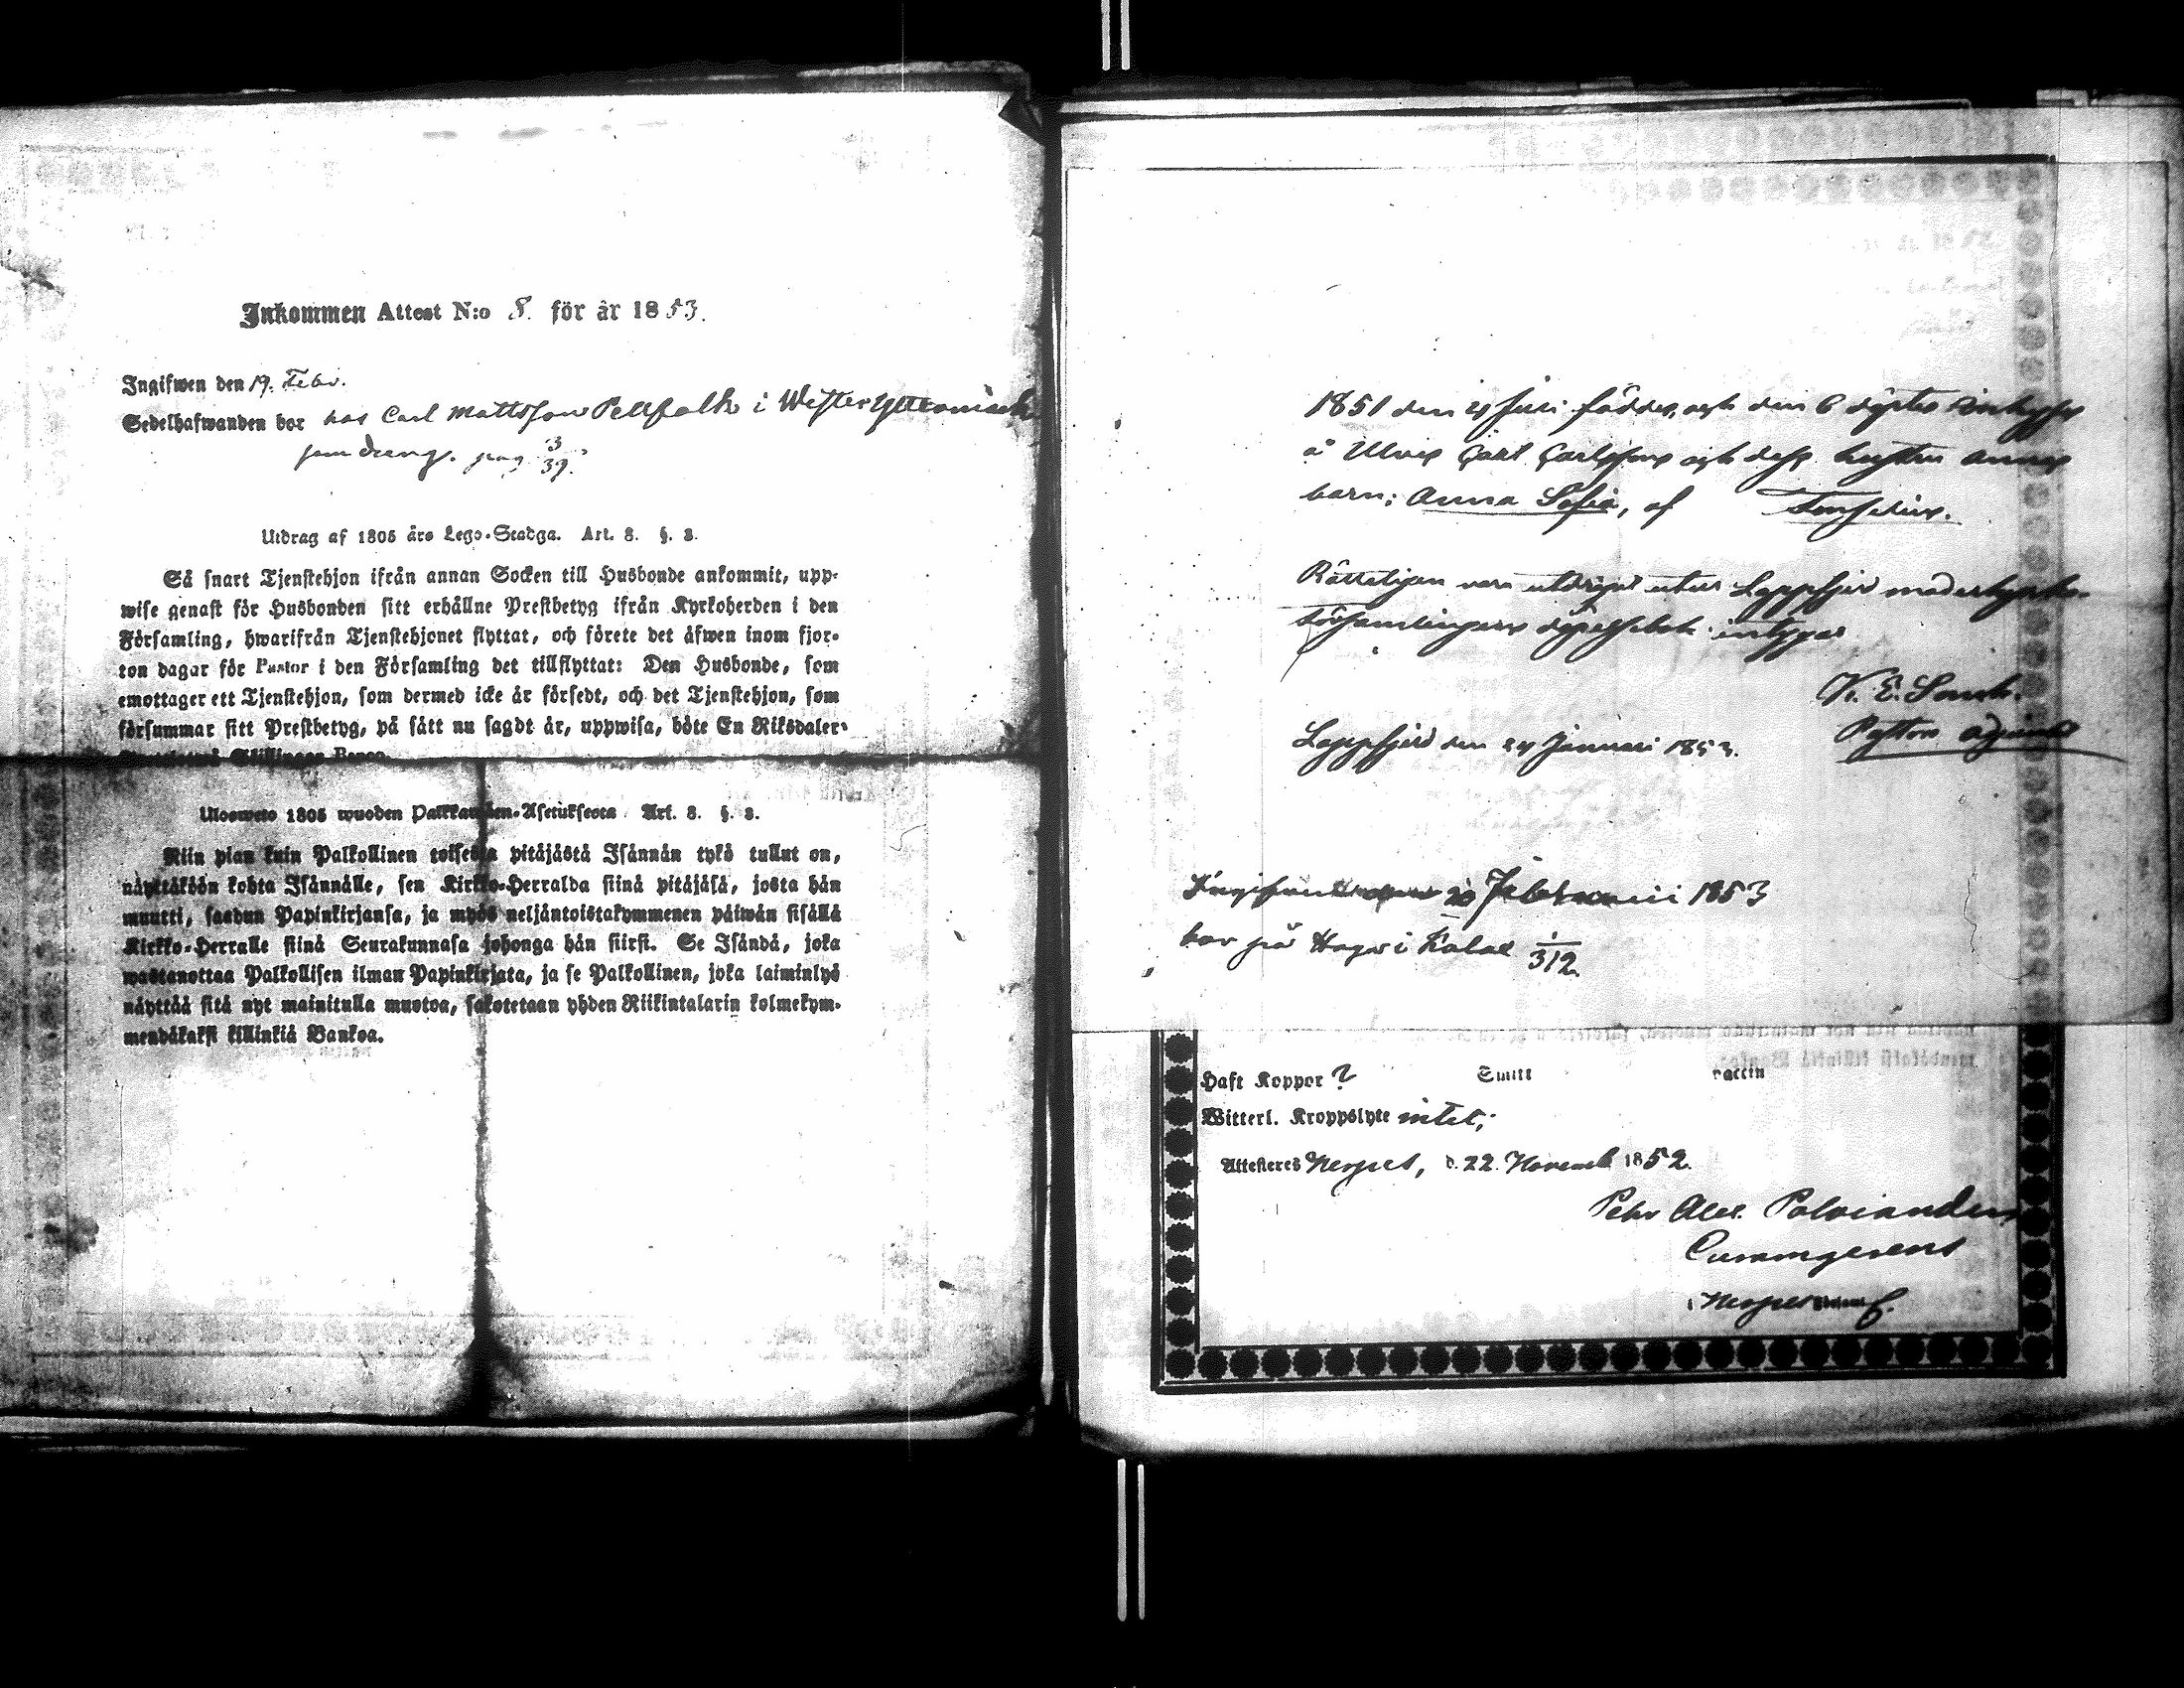 Inkommen Attest N:o 8. för år 1853.
Ingifwen den 19. Febr.
Sedelhafwanden bor hos Carl Mattsson Pellfalk i Wester Yttermark
som dreng. pag 3/39.
Utdrag af 1805 års Lego-Stadga. Art. 8. §. 2.
Så snart Tjenstehjon ifrån annan Socken till Husbonde ankommit, upp-
wise genast för Husbonden sitt erhållne Prestbetyg ifrån Kyrkoherden i den
Församling, hwarifrån Tjenstehjonet flyttat, och förete det äfwen inom fjor-
ton dagar för Pastor i den Församling det tillflyttat: Den Husbonde, som
emottager ett Tjenstehjon, som dermed icke är försedt, och det Tjenstehjon, som
försummar sitt Prestbetyg, på sätt nu sagdt är, uppwisa, böte En Riksdaler
Skillingar Banco.
Ulosweto 1805 wuoden Palkkawäen-Asetuksesta Art. 8. §. 2.
Niin pian kuin Palkollinen toisesta pitäjästä Isännän tykö tullut on,
näyttäköön kohta Isännälle, sen Kirkko-Herralda siinä pitäjäsä, josta hän
muutti, saadun Papinkirjansa, ja myös neljäntoistakymmenen päiwän sisällä
Kirkko-Herralle siinä Seurakunnasa johonga hän siirsi. Se Isändä, joka
wastanottaa Palkollisen ilman Papinkirjata, ja se Palkollinen, joka laiminlyö
näyttää sitä nyt mainitulla muotoa, sakotetaan yhden Riikintalarin kolmekym-
mendäkaksi killinkiä Bankoa.
1851 den 4 Juni föddes, och den 6 döptes
å Ulvis Carl Carlssons och dess hustru Annas
barn: Anna Sofia, af
Rätteligen vara utdraget utur Lappfjerd moderkyrko-
församlingens dopelsebok intygar
K. E.
Lappfjerd den 24 Januari 1853. Pastors adjunkt
den 20 Februarii 1853
bor på Hagas i Kalax 1/312.
Haft Koppor ? Smitt Vaccin
Witterl. Kroppslyte intet;
Attesteras Nerpes, d. 22. Novemb 1852.
Pehr Alex. Polviander
Cummgerens
i Nerpes